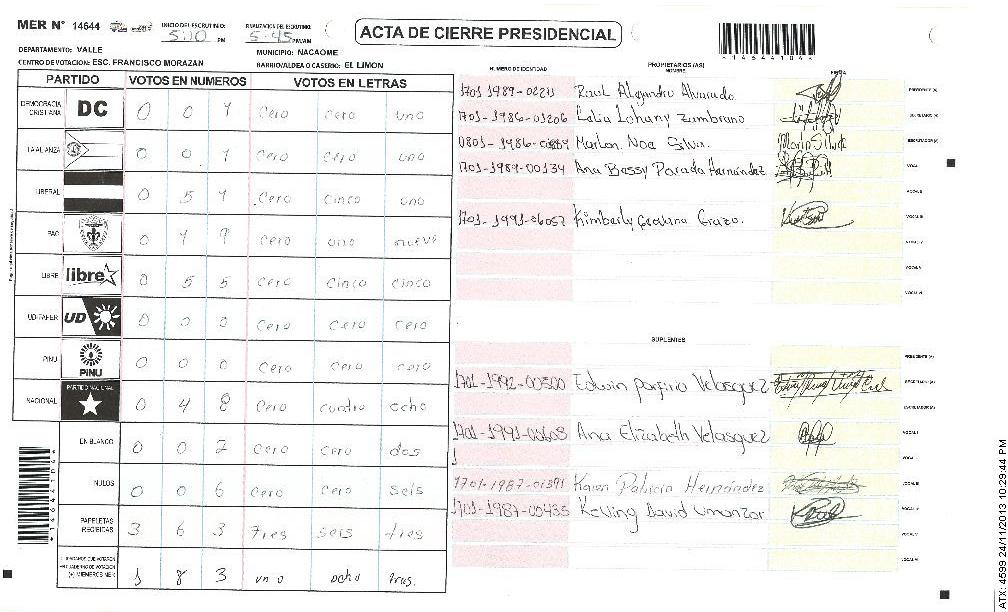 MER N° 14644
INICIO DEL ESCRUTINIO: 5:00 PM
FINALIZACION DEL ESCRUTINIO: 5:45 PM/AM
ACTA DE CIERRE PRESIDENCIAL
*14644104*
DEPARTAMENTO: VALLE
MUNICIPIO: NACAOME
CENTRO DE VOTACION: ESC. FRANCISCO MORAZAN
BARRIO/ALDEA O CASERIO: EL LIMON
PARTIDO VOTOS EN NUMEROS VOTOS EN LETRAS
DEMOCRACIA CRISTIANA DC 0 0 1 cero cero uno
LA ALIANZA 0 0 1 cero cero uno
LIBERAL 0 5 1 cero cinco uno
PAC 0 1 9 cero uno nueve
LIBRE libre 0 5 5 cero cinco cinco
UD-FAPER UD 0 0 0 cero cero cero
PINU PINU 0 0 0 cero cero cero
NACIONAL PARTIDO NACIONAL 0 4 8 cero cuatro ocho
EN BLANCO 0 0 2 cero cero dos
NULOS 0 0 6 cero cero seis
PAPELETAS RECIBIDAS 3 6 3 tres seis tres
1 8 3 uno ocho tres.
NUMERO DE IDENTIDAD PROPIETARIOS (AS) NOMBRE FIRMA
1701 1989-02211 Raul Alejandro Alvarado PRESIDENTE (A)
1701-1986-01206 Lohany Zumbrano SECRETARIO (A)
0801-1986- Marlon Noe Silva. ESCRUTADOR (A)
1701-1989-00134 Ana Bessy Parada Hernández VOCAL I
VOCAL II
1701-1991- Kimberly VOCAL III
VOCAL IV
VOCAL V
VOCAL VI
SUPLENTES
PRESIDENTE (A)
1701-1992-00500 Edwin Porfirio Velasquez SECRETARIO (A)
ESCRUTADOR (A)
1701-1991-00605 Ana Elizabeth Velasquez VOCAL I
VOCAL II
1701-1987-01391 Karen Patricia Hernández VOCAL III
1701-1987-00435 Kelling David Umanzor VOCAL IV
VOCAL V
VOCAL VI
ATX: 4599 24/11/2013 10:29:44 PM